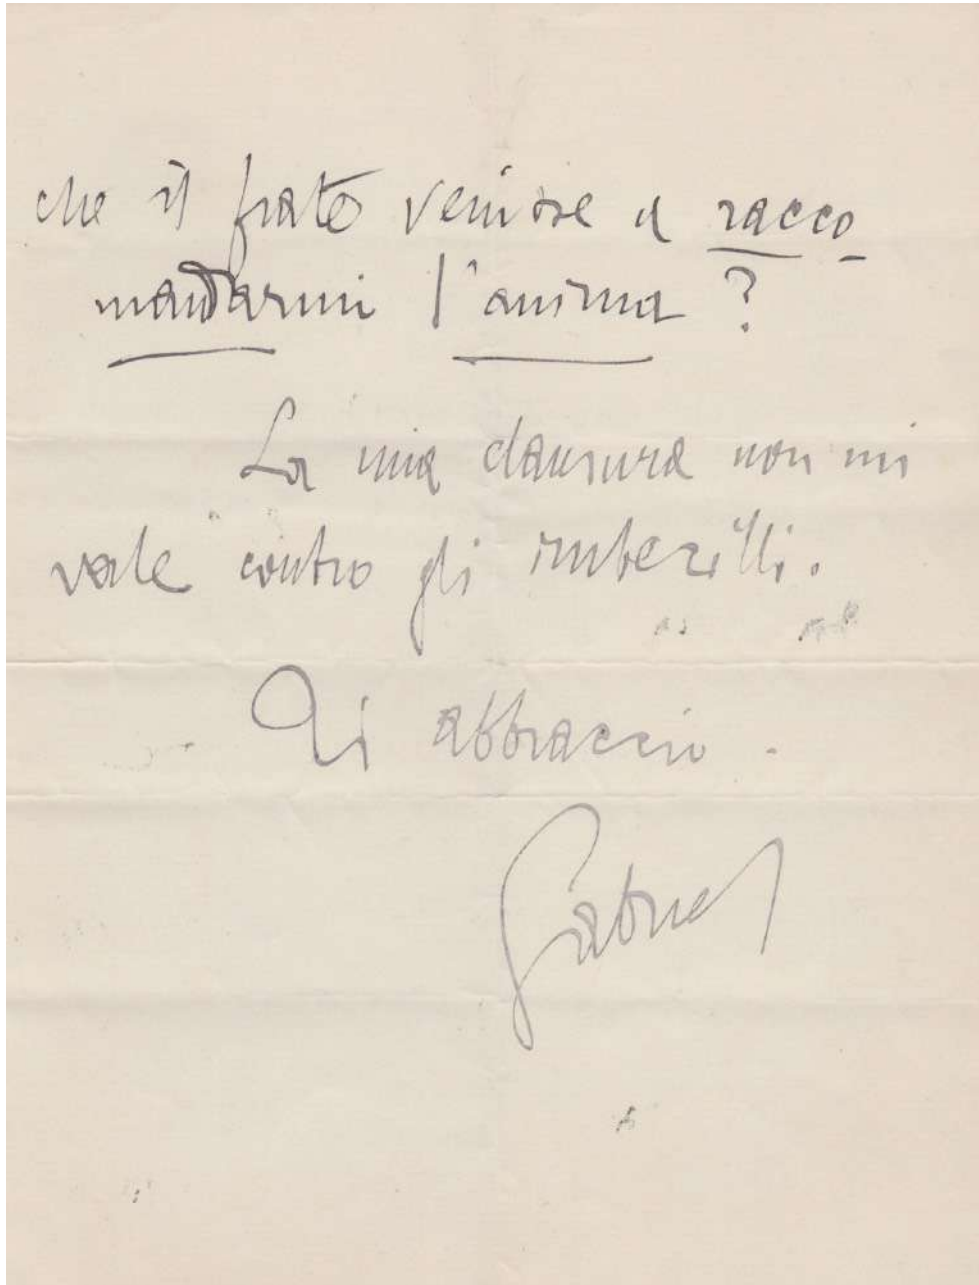 che il frate venisse a racco
mandarmi l'anima?
La mia clausura non mi
vale contro gli imbecilli.
Ti abbraccio.
Gabriel